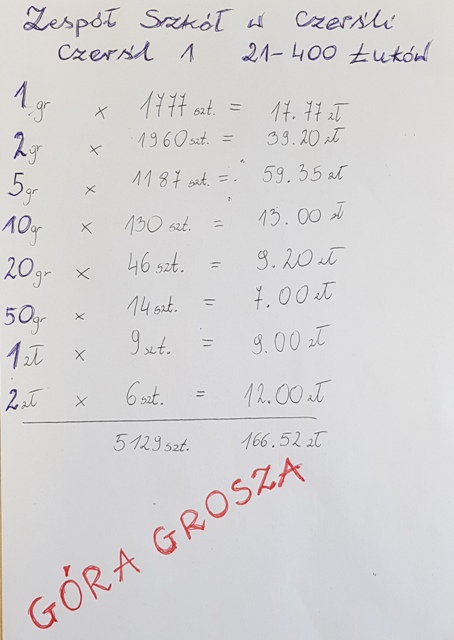 Zespół Szkół w Czerśli
Czerśl 1 21-400 Łuków
1gr x 1777 szt. = 17.77 zł
2gr x 1960 szt. = 39.20 zł
5gr x 1187 szt. = 59.35 zł
10gr x 130 szt. = 13.00 zł
20gr x 46 szt. = 9.20 zł
50gr x 14 szt. = 7.00 zł
1zł x 9 szt. = 9.00 zł
2zł x 6 szt. = 12.00 zł
5129 szt. 166.52 zł
GÓRA GROSZA